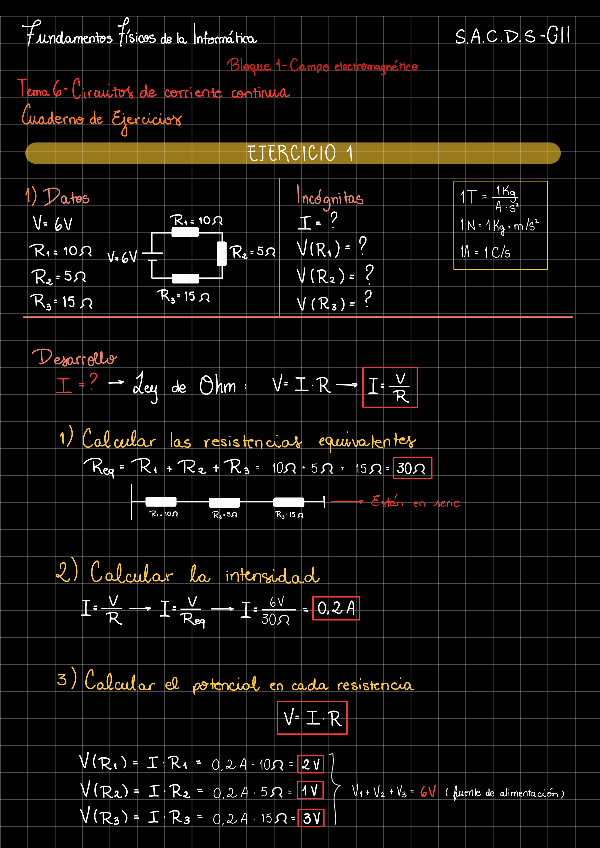 Fundamentos Físicos de la Informática
S.A.C.D.S-GII
Bloque 1-Campo electromagnético
Tema 6-Circuitos de corriente continua
Cuaderno de Ejercicios
EJERCICIO 1
1) Datos
V= 6V
R₁= 10Ω
R₂= 5Ω
R₃= 15Ω
R₁= 10Ω
V=6V
R₂= 5Ω
R₃= 15Ω
Incógnitas
I = ?
V(R₁) = ?
V(R₂) = ?
V(R₃) = ?
1T = 1Kg / A·s²
1N=1Kg·m/s²
1A = 1C/s
Desarrollo
I = ? → Ley de Ohm: V= I·R → I= V/R
1) Calcular las resistencias equivalentes
Req = R₁ + R₂ + R₃ = 10Ω + 5Ω + 15Ω = 30Ω
R₁=10Ω R₂=5Ω R₃=15Ω → Están en serie
2) Calcular la intensidad
I= V/R → I= V/Req → I= 6V/30Ω = 0,2A
3) Calcular el potencial en cada resistencia
V= I·R
V(R₁) = I·R₁ = 0,2A·10Ω = 2V
V(R₂) = I·R₂ = 0,2A·5Ω = 1V
V(R₃) = I·R₃ = 0,2A·15Ω = 3V
V₁+V₂+V₃ = 6V (fuente de alimentación)